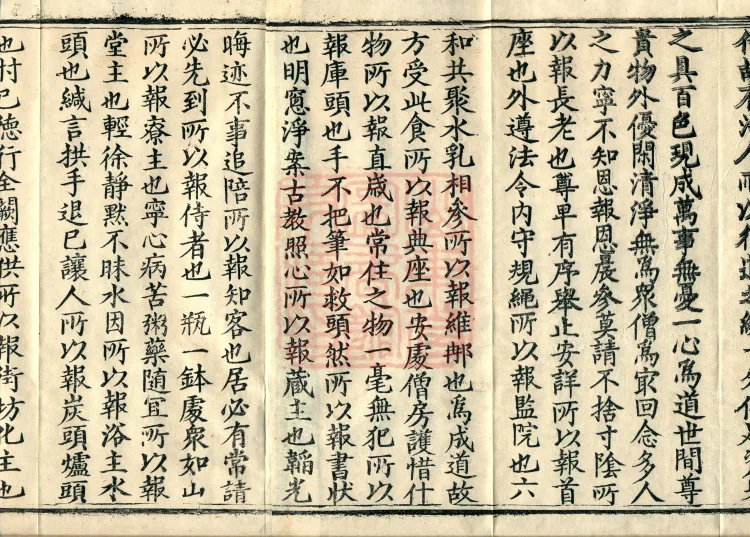 之具百色現成萬事無憂一心爲道世間尊
貴物外優閑清淨無爲衆僧爲冣回念多人
之力寧不知恩報恩晨參莫請不捨寸陰所
以報長老也尊卑有序舉止安詳所以報首
座也外遵法令内守規繩所以報監院也六
和共聚水乳相參所以報維那也爲成道故
方受此食所以報典座也安處僧房護惜什
物所以報直歲也常住之物一毫無犯所以
報庫頭也手不把筆如救頭然所以報書狀
也明窓淨案古教照心所以報藏主也韜光
晦迹不事追陪所以報知客也居必有常請
必先到所以報侍者也一瓶一鉢處衆如山
所以報寮主也寧心病苦粥藥隨宜所以報
堂主也輕徐靜默不昧水因所以報浴主水
頭也緘言拱手退已讓人所以報炭頭爐頭
也忖已德行全闕應供所以報街坊化主也